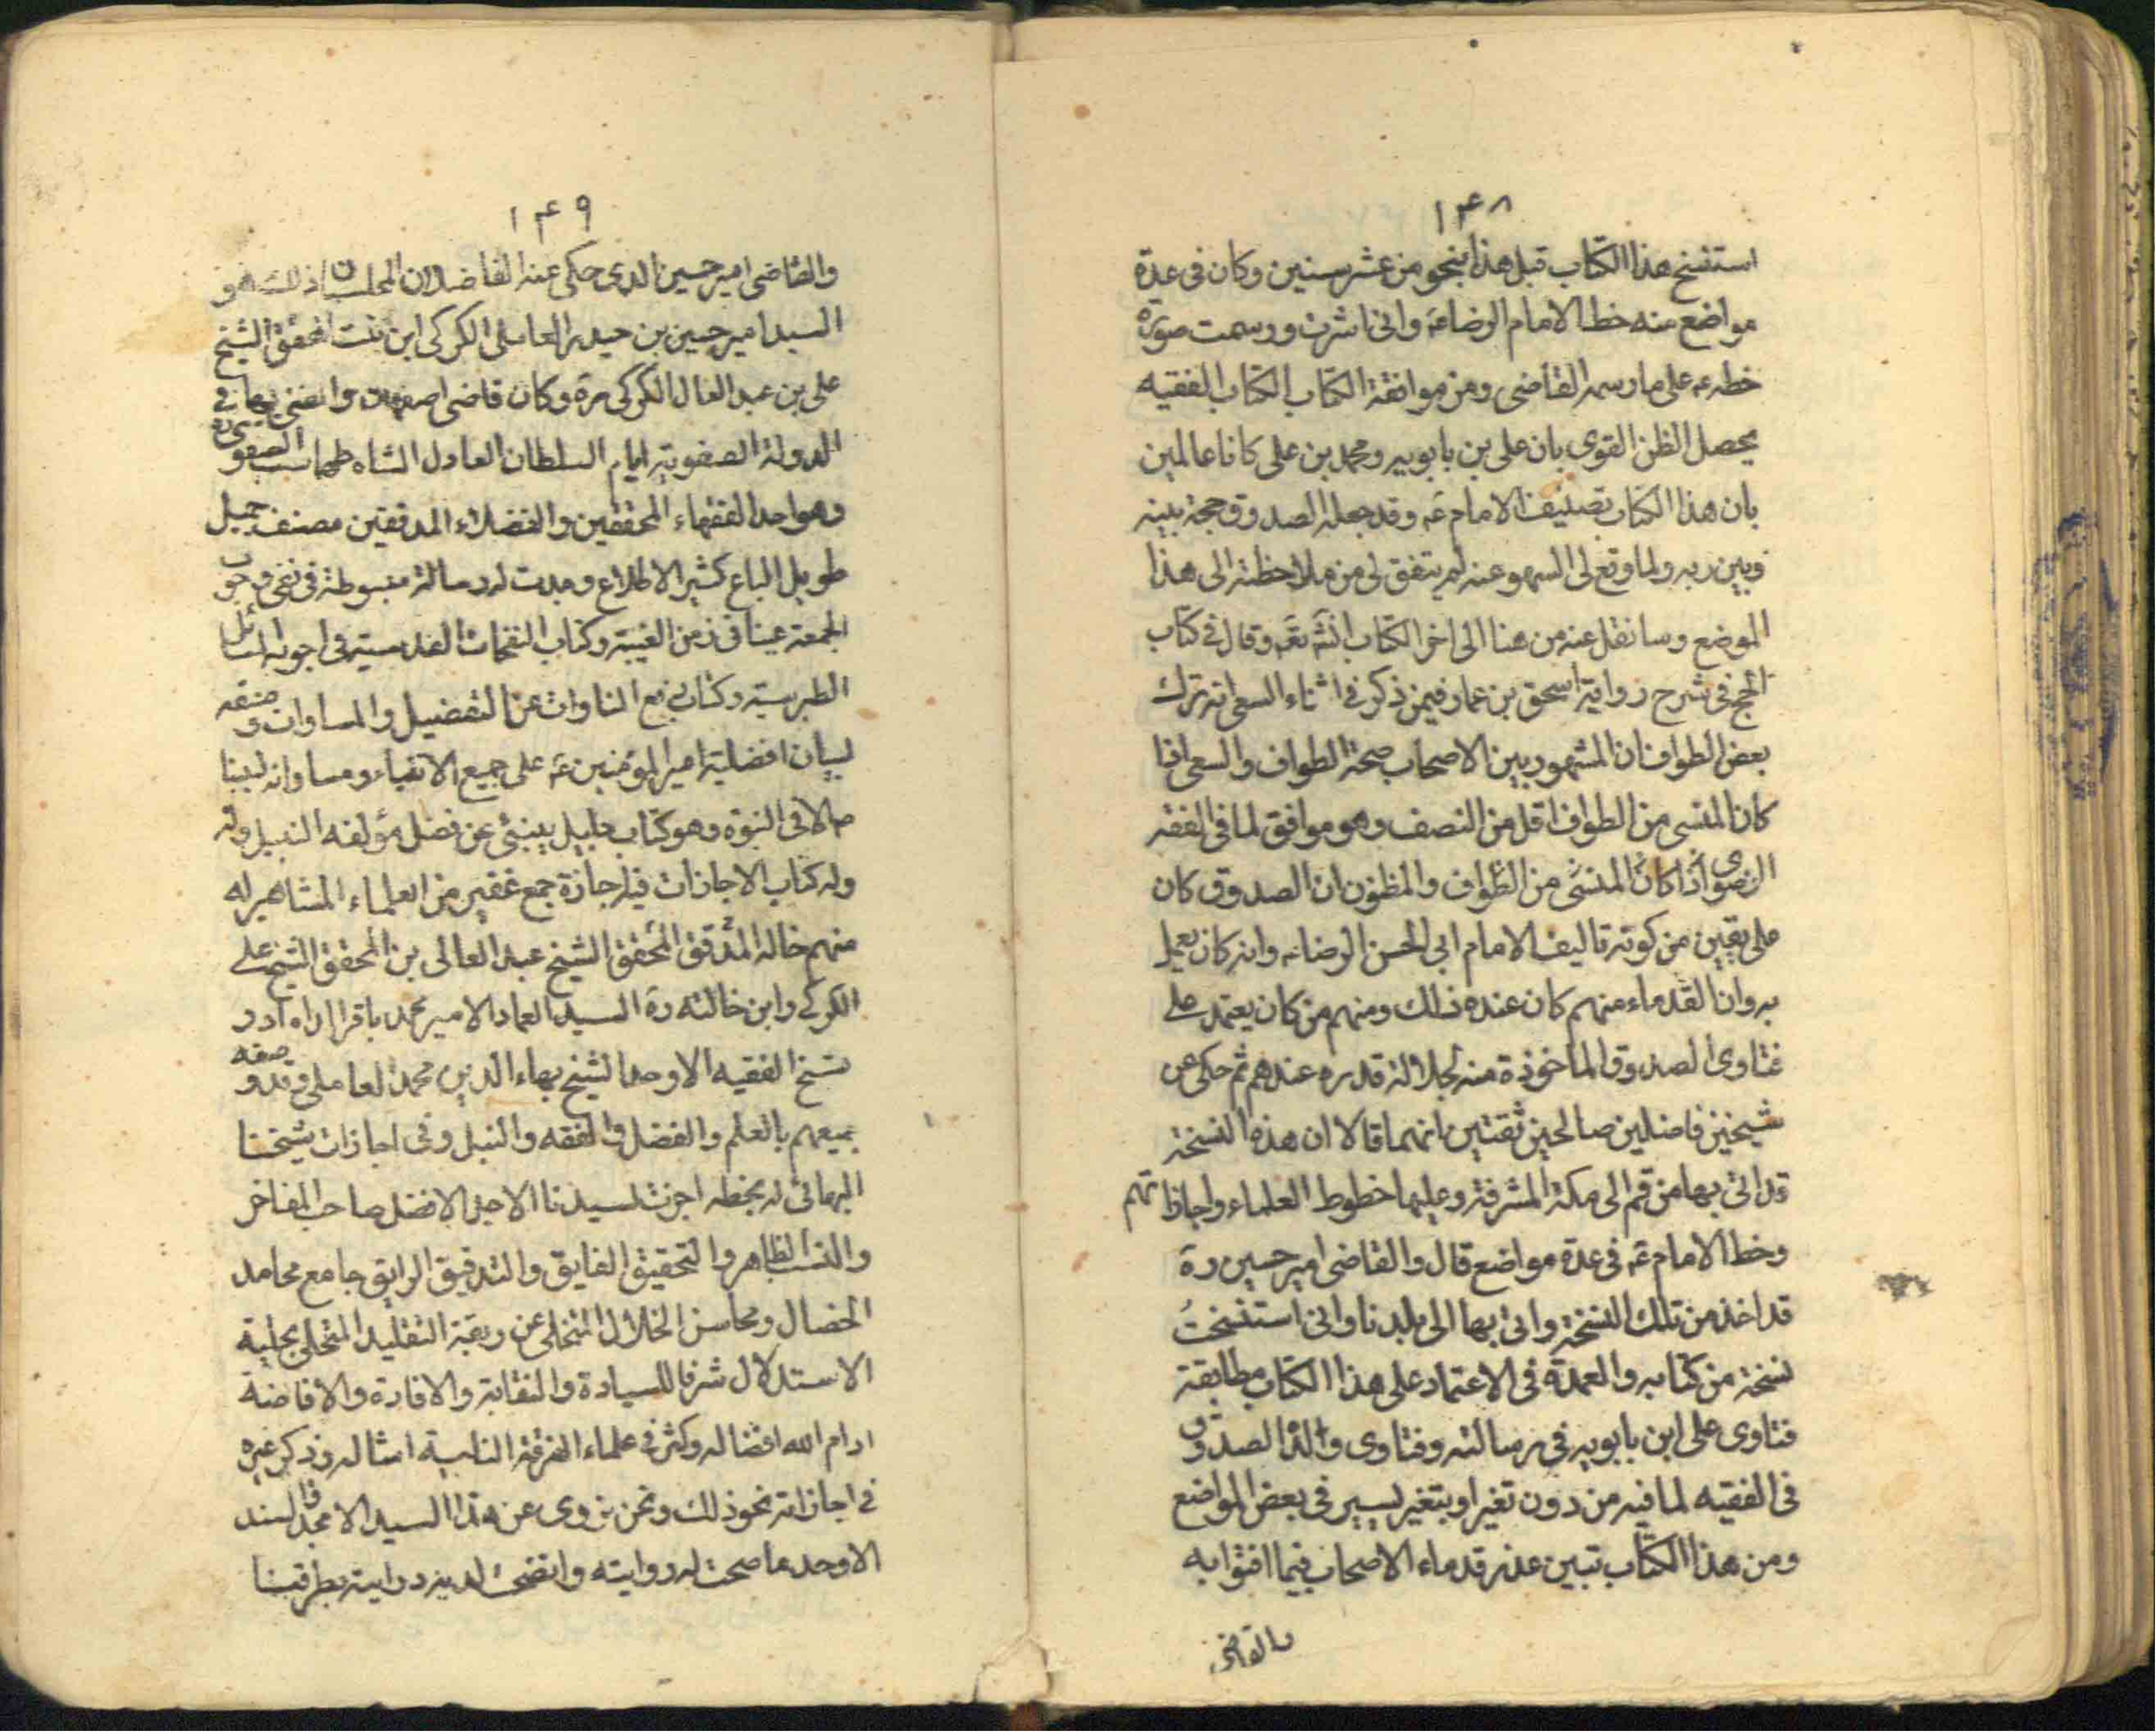 ١۴٨
استنسخ هذا الكتاب قبل هذا بنحو من عشر سنين وكان فى عدة
مواضع منه خط الامام الرضاء وانى اشرت ورسمت صورة
خطه ع على ما رسمه القاضى ومن موافقة الكتاب الكتاب الفقيه
يحصل الظن القوى بان على بن بابويه ومحمد بن على كانا عالمين
بان هذا الكتاب تصنيف الامام ع وقد جعله الصدوق حجة بينه
وبين ربه ولما وقع لى السهو عنه لم يتفق لى من ملاحظته الى هذا
الموضع وسانقل عنه من هنا الى اخر الكتاب انشه تعه وقال فى كتاب
الحج فى شرح رواية اسحق بن عمار فيمن ذكر فى اثناء السعى انه ترك
بعض الطواف ان المشهور بين الاصحاب صحة الطواف والسعى اذا
كان المنسى من الطواف اقل من النصف وهو موافق لما فى الفقه
الرضوى اذا كان المنسى من الطواف والمظنون ان الصدوق كان
على يقين من كونه تاليف الامام ابى الحسن الرضاء وانه كان يعمل
به وان القدماء منهم كان عنده ذلك ومنهم من كان يعتمد على
فتاوى الصدوق الماخوذة منه لجلالة قدره عندهم ثم حكى عن
شيخين فاضلين صالحين ثقتين انهما قالا ان هذه النسخة
قد اتى بها من قم الى مكة المشرفة وعليها خطوط العلماء واجازاتهم
وخط الامام ع فى عدة مواضع قال والقاضى امير حسين ره
قد اخذ من تلك النسخة واتى بها الى بلدنا وانى استنسخت
نسخة من كتابه والعمدة فى الاعتماد على هذا الكتاب مطابقة
فتاوى على ابن بابويه فى رسالته وفتاوى والده الصدوق
فى الفقيه لما فيه من دون تغير او بتغير يسير فى بعض المواضع
ومن هذا الكتاب تبين عذر قدماء الاصحاب فيما افتوا به
والقاضى
١۴٩
والقاضى امير حسين الذى حكى عنه الفاضلان المجلسيان ذلك هو
السيد امير حسين بن حيدر العاملى الكركى ابن بنت المحقق الشيخ
على بن عبد العال الكركى ره وكان قاضى اصفهان والمفتى بها فى
الدولة الصفوية ايام السلطان العادل الشاه طهماسب الصفوى
وهو احد الفقهاء المحققين والفضلاء المدققين مصنف جميل
طويل الباع كثير الاطلاع وجدت له رسالة مبسوطة فى نفى وجوب
الجمعة عينا فى زمن الغيبة وكتاب النفحات القدسية فى اجوبة المسائل
الطبرسية وكتاب رفع المناوات عن التفضيل والمساوات وصنفه
لبيان افضلية امير المؤمنين ع على جميع الانبياء ومساواته لنبينا
ص الا فى النبوة وهو كتاب جليل ينبئ عن فضل مؤلفه النبيل وله
وله كتاب الاجازات فيه اجازة جمع غفير من العلماء المشاهير له
منهم خاله المدقق المحقق الشيخ عبد العالى بن المحقق الشيخ على
الكركى وابن خالته ره السيد العماد الامير محمد باقر الداماد و
شيخ الفقيه الاوحد الشيخ بهاء الدين محمد العاملى وقد وصفه
جميعهم بالعلم والفضل والفقه والنبل وفى اجازات شيخنا
البهائى له بخطه اجزت لسيدنا الاجل الافضل صاحب المفاخر
والنسب الطاهر والتحقيق الفايق والتدقيق الرايق جامع محامد
الخصال ومحاسن الخلال المتخلى عن ربقة التقليد المتحلى بحلية
الاستدلال شرفا للسيادة والنقابة والافادة والافاضة
ادام الله افضاله وكثر فى علماء الفرقة الناجية امثاله وذكر غيره
فى اجازاته نحو ذلك ونحن نروى عن هذا السيد الامجد والسند
الاوحد ما صحت له روايته واتضحت لديه درايته بطرقنا